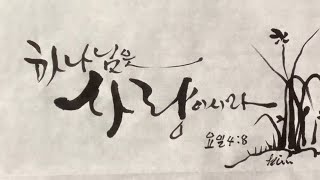 하나님은
사랑이시라
요일 4:8